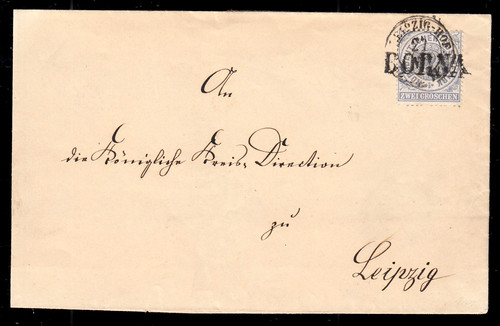 LEIPZIG-HOF
BORNA
ZWEI GROSCHEN
An
die Königliche Kreis-Direction
zu
Leipzig